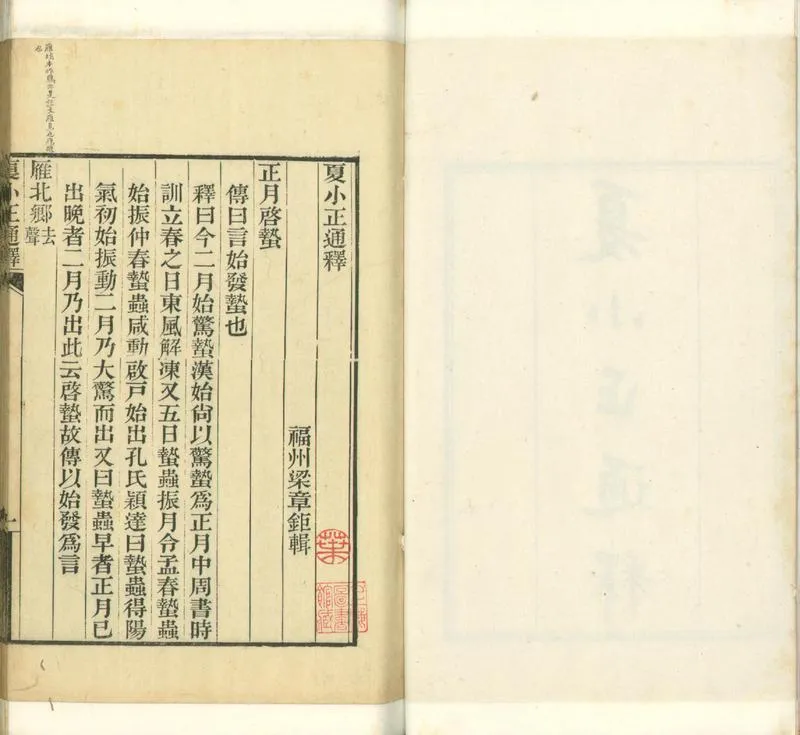 夏小正通釋
福州梁章鉅輯
正月啓蟄
傳曰言始發蟄也
釋曰今二月始驚蟄漢始尙以驚蟄爲正月中周書時
訓立春之日東風解凍又五日蟄蟲始振月令孟春蟄蟲
始振仲春蟄蟲咸動啟戸始出孔氏穎達曰蟄蟲得陽
氣初始振動二月乃大驚而出又曰蟄蟲早者正月已
出晚者二月乃出此云啓蟄故傳以始發爲言
雁北鄉去聲
夏小正通釋
一
葉